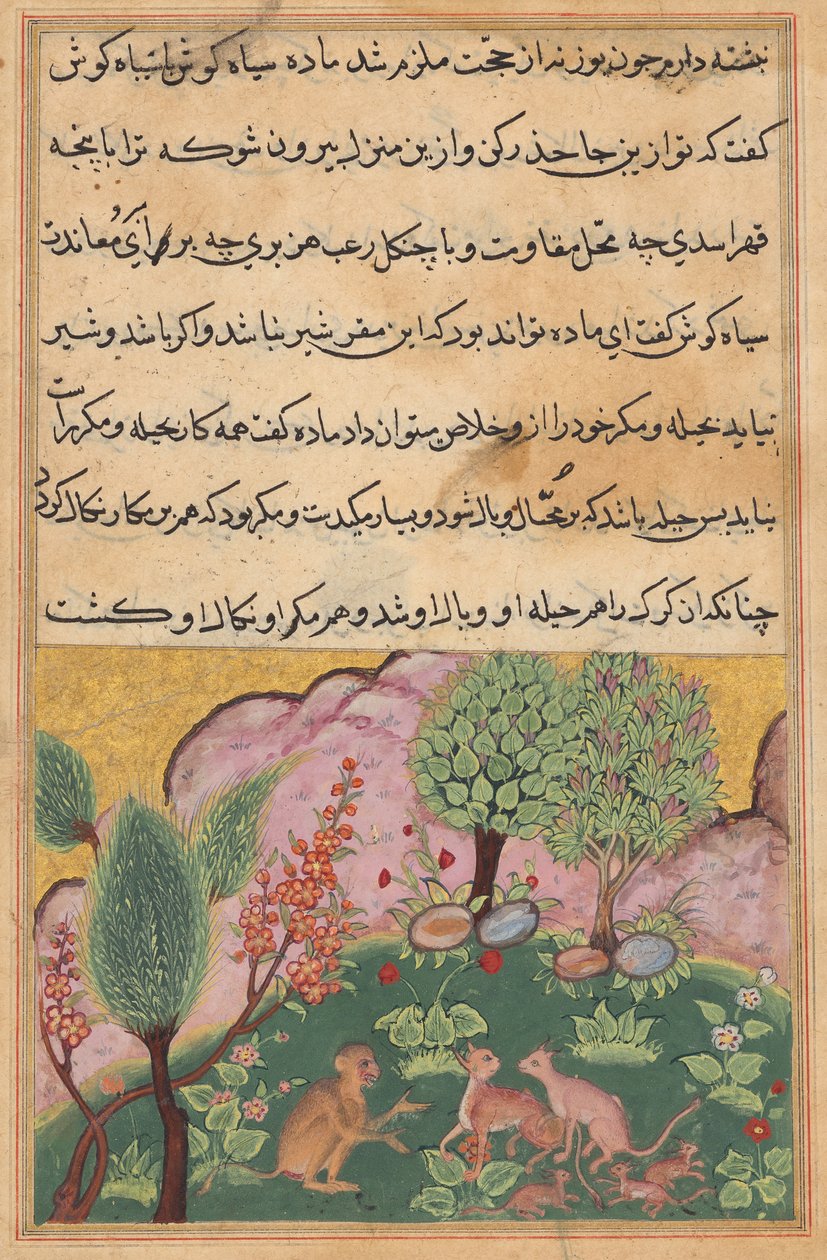 نبشته دارم جون بوزنه از حجّت ملزم شد ماده سیاه کوش با سیاه کوش
کفت که تو ازین جا حذر کن و ازین منزل بیرون شو که ترا با پنجه
قهر اسدي چه محّل مقاومت و با چنکل رعب هزبري چه براي مُعاندت
سیاه کوش کفت اي ماده تواند بود که این مقر شیر نباشد و اکر باشد و شیر
بیاید بحیله و مکر خود را ازو خلاص میتوان داد ماده کفت همه کار بحیله و مکر راست
نیاید بس حیله باشد که بر مُحتال وبال شود و بسیار مکیدت و مکر بود که هم بر مکار نکال کردد
چنانکه ان کرک را هم حیله او وبال او شد و هم مکر او نکال او کشت